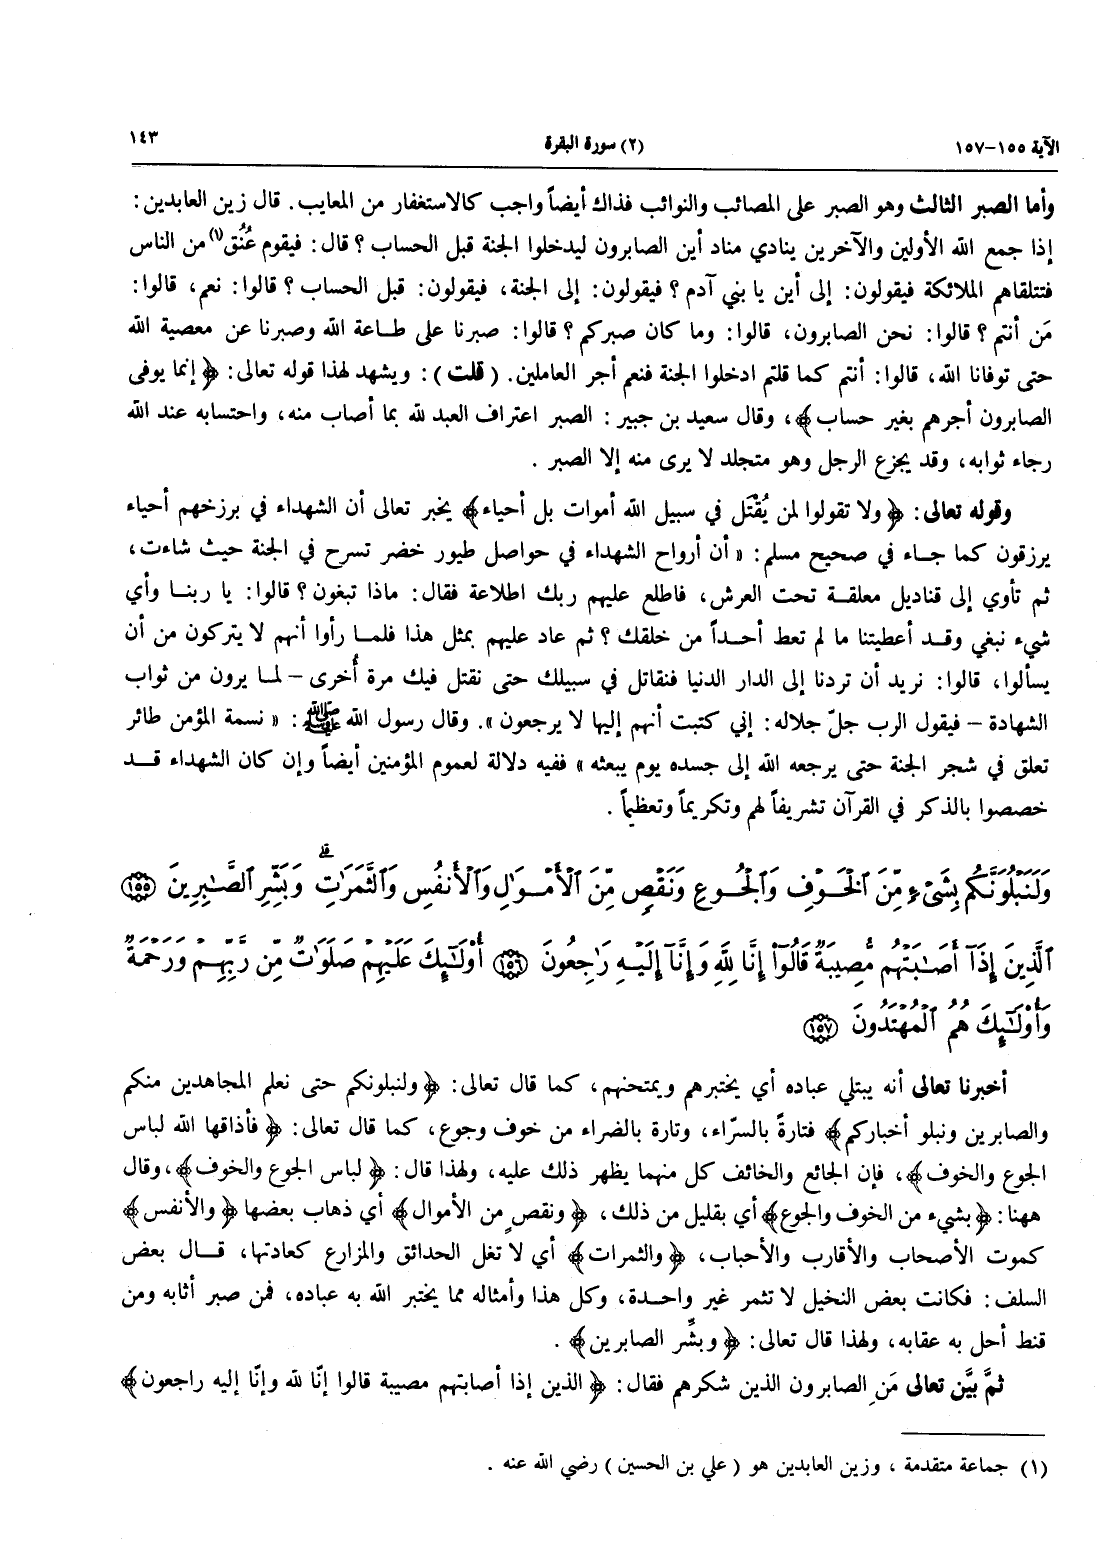 الآية ١٥٥-١٥٧ (٢) سورة البقرة ١٤٣
وأما الصبر الثالث وهو الصبر على المصائب والنوائب فذاك أيضاً واجب كالاستغفار من المعايب. قال زين العابدين:
إذا جمع الله الأولين والآخرين ينادي مناد أين الصابرون ليدخلوا الجنة قبل الحساب؟ قال: فيقوم عُنُق(١) من الناس
فتتلقاهم الملائكة فيقولون: إلى أين يا بني آدم؟ فيقولون: إلى الجنة، فيقولون: قبل الحساب؟ قالوا: نعم، قالوا:
مَن أنتم؟ قالوا: نحن الصابرون، قالوا: وما كان صبركم؟ قالوا: صبرنا على طاعة الله وصبرنا عن معصية الله
حتى توفانا الله، قالوا: أنتم كما قلتم ادخلوا الجنة فنعم أجر العاملين. (قلت): ويشهد لهذا قوله تعالى: ﴿إنما يوفى
الصابرون أجرهم بغير حساب﴾، وقال سعيد بن جبير: الصبر اعتراف العبد لله بما أصاب منه، واحتسابه عند الله
رجاء ثوابه، وقد يجزع الرجل وهو متجلد لا يرى منه إلا الصبر.
وقوله تعالى: ﴿ولا تقولوا لمن يُقْتَل في سبيل الله أموات بل أحياء﴾ يخبر تعالى أن الشهداء في برزخهم أحياء
يرزقون كما جاء في صحيح مسلم: « أن أرواح الشهداء في حواصل طيور خضر تسرح في الجنة حيث شاءت،
ثم تأوي إلى قناديل معلقة تحت العرش، فاطلع عليهم ربك اطلاعة فقال: ماذا تبغون؟ قالوا: يا ربنا وأي
شيء نبغي وقد أعطيتنا ما لم تعط أحداً من خلقك؟ ثم عاد عليهم بمثل هذا فلما رأوا أنهم لا يتركون من أن
يسألوا، قالوا: نريد أن تردنا إلى الدار الدنيا فنقاتل في سبيلك حتى نقتل فيك مرة أُخرى - لما يرون من ثواب
الشهادة - فيقول الرب جلّ جلاله: إني كتبت أنهم إليها لا يرجعون ». وقال رسول الله ﷺ: « نسمة المؤمن طائر
تعلق في شجر الجنة حتى يرجعه الله إلى جسده يوم يبعثه » ففيه دلالة لعموم المؤمنين أيضاً وإن كان الشهداء قد
خصصوا بالذكر في القرآن تشريفاً لهم وتكريماً وتعظيماً.
وَلَنَبْلُوَنَّكُم بِشَىْءٍ مِّنَ ٱلْخَوْفِ وَٱلْجُوعِ وَنَقْصٍ مِّنَ ٱلْأَمْوَٰلِ وَٱلْأَنفُسِ وَٱلثَّمَرَٰتِ ۗ وَبَشِّرِ ٱلصَّـٰبِرِينَ ﴿١٥٥﴾
ٱلَّذِينَ إِذَآ أَصَـٰبَتْهُم مُّصِيبَةٌ قَالُوٓا۟ إِنَّا لِلَّهِ وَإِنَّآ إِلَيْهِ رَٰجِعُونَ ﴿١٥٦﴾ أُو۟لَـٰٓئِكَ عَلَيْهِمْ صَلَوَٰتٌ مِّن رَّبِّهِمْ وَرَحْمَةٌ
وَأُو۟لَـٰٓئِكَ هُمُ ٱلْمُهْتَدُونَ ﴿١٥٧﴾
أخبرنا تعالى أنه يبتلي عباده أي يختبرهم ويمتحنهم، كما قال تعالى: ﴿ولنبلونكم حتى نعلم المجاهدين منكم
والصابرين ونبلو أخباركم﴾ فتارةً بالسرّاء، وتارة بالضراء من خوف وجوع، كما قال تعالى: ﴿فأذاقها الله لباس
الجوع والخوف﴾، فإن الجائع والخائف كل منهما يظهر ذلك عليه، ولهذا قال: ﴿لباس الجوع والخوف﴾، وقال
ههنا: ﴿بشيء من الخوف والجوع﴾ أي بقليل من ذلك، ﴿ونقصٍ من الأموال﴾ أي ذهاب بعضها ﴿والأنفس﴾
كموت الأصحاب والأقارب والأحباب، ﴿والثمرات﴾ أي لا تغل الحدائق والمزارع كعادتها، قال بعض
السلف: فكانت بعض النخيل لا تثمر غير واحدة، وكل هذا وأمثاله مما يختبر الله به عباده، فمن صبر أثابه ومن
قنط أحل به عقابه، ولهذا قال تعالى: ﴿وبشِّر الصابرين﴾.
ثمَّ بيَّن تعالى مَنِ الصابرون الذين شكرهم فقال: ﴿الذين إذا أصابتهم مصيبة قالوا إنّا لله وإنّا إليه راجعون﴾
(١) جماعة متقدمة، وزين العابدين هو (علي بن الحسين) رضي الله عنه.